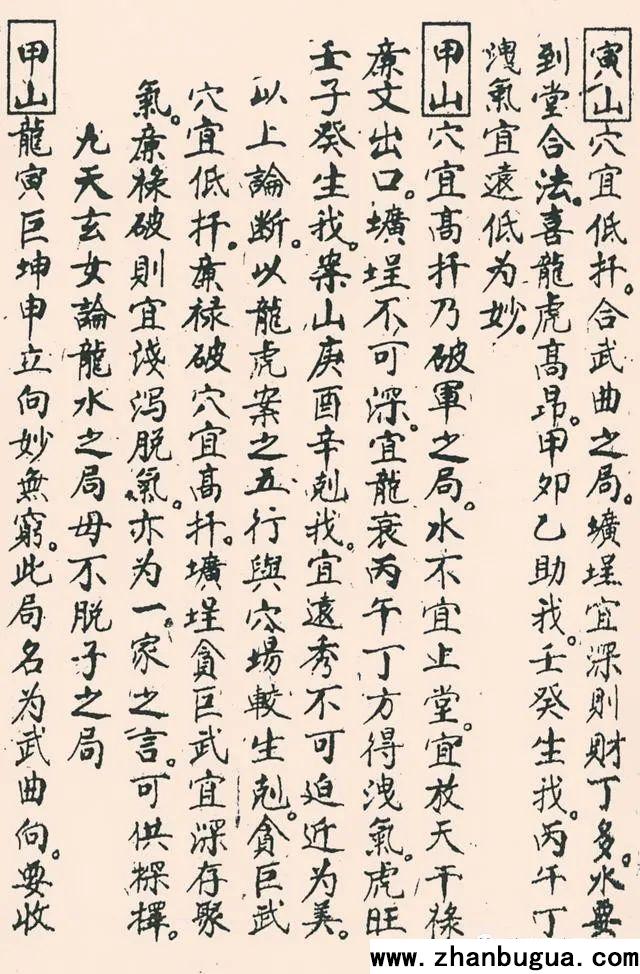 寅山穴宜低扦。合武曲之局。壙埕宜深則財丁多。水要
到堂合法。喜龍虎高昂。甲卯乙助我。壬癸生我。丙午丁
洩氣宜遠低为妙。
甲山穴宜高扦乃破軍之局。水不宜上堂。宜放天干祿
廉文出口。壙埕不可深。宜龍衰丙午丁方得洩氣。虎旺
壬子癸生我。案山庚酉辛剋我。宜遠秀不可迫近为美。
以上論断。以龍虎案之五行與穴場較生剋。貪巨武
穴宜低扦。廉祿破穴宜高扦。壙埕貪巨武宜深存聚
氣。廉祿破則宜淺泻脱氣。亦为一家之言。可供探擇。
九天玄女論龍水之局毋不脱子之局
甲山龍寅巨坤申立向妙無窮。此局名为武曲向。要收
www.zhanbugua.com